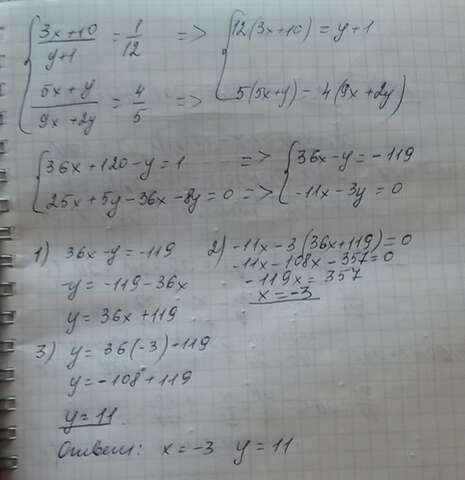 { (3x+10)/(y+1) = 1/12 => { 12(3x+10) = y+1
{ (5x+y)/(9x+2y) = 4/5 => { 5(5x+y) = 4(9x+2y)
{ 36x+120-y=1 => { 36x-y=-119
{ 25x+5y-36x-8y=0 => { -11x-3y=0
1) 36x-y=-119
-y=-119-36x
y=36x+119
2) -11x-3(36x+119)=0
-11x-108x-357=0
-119x=357
x=-3
3) y=36(-3)+119
y=-108+119
y=11
Ответ: x=-3 y=11